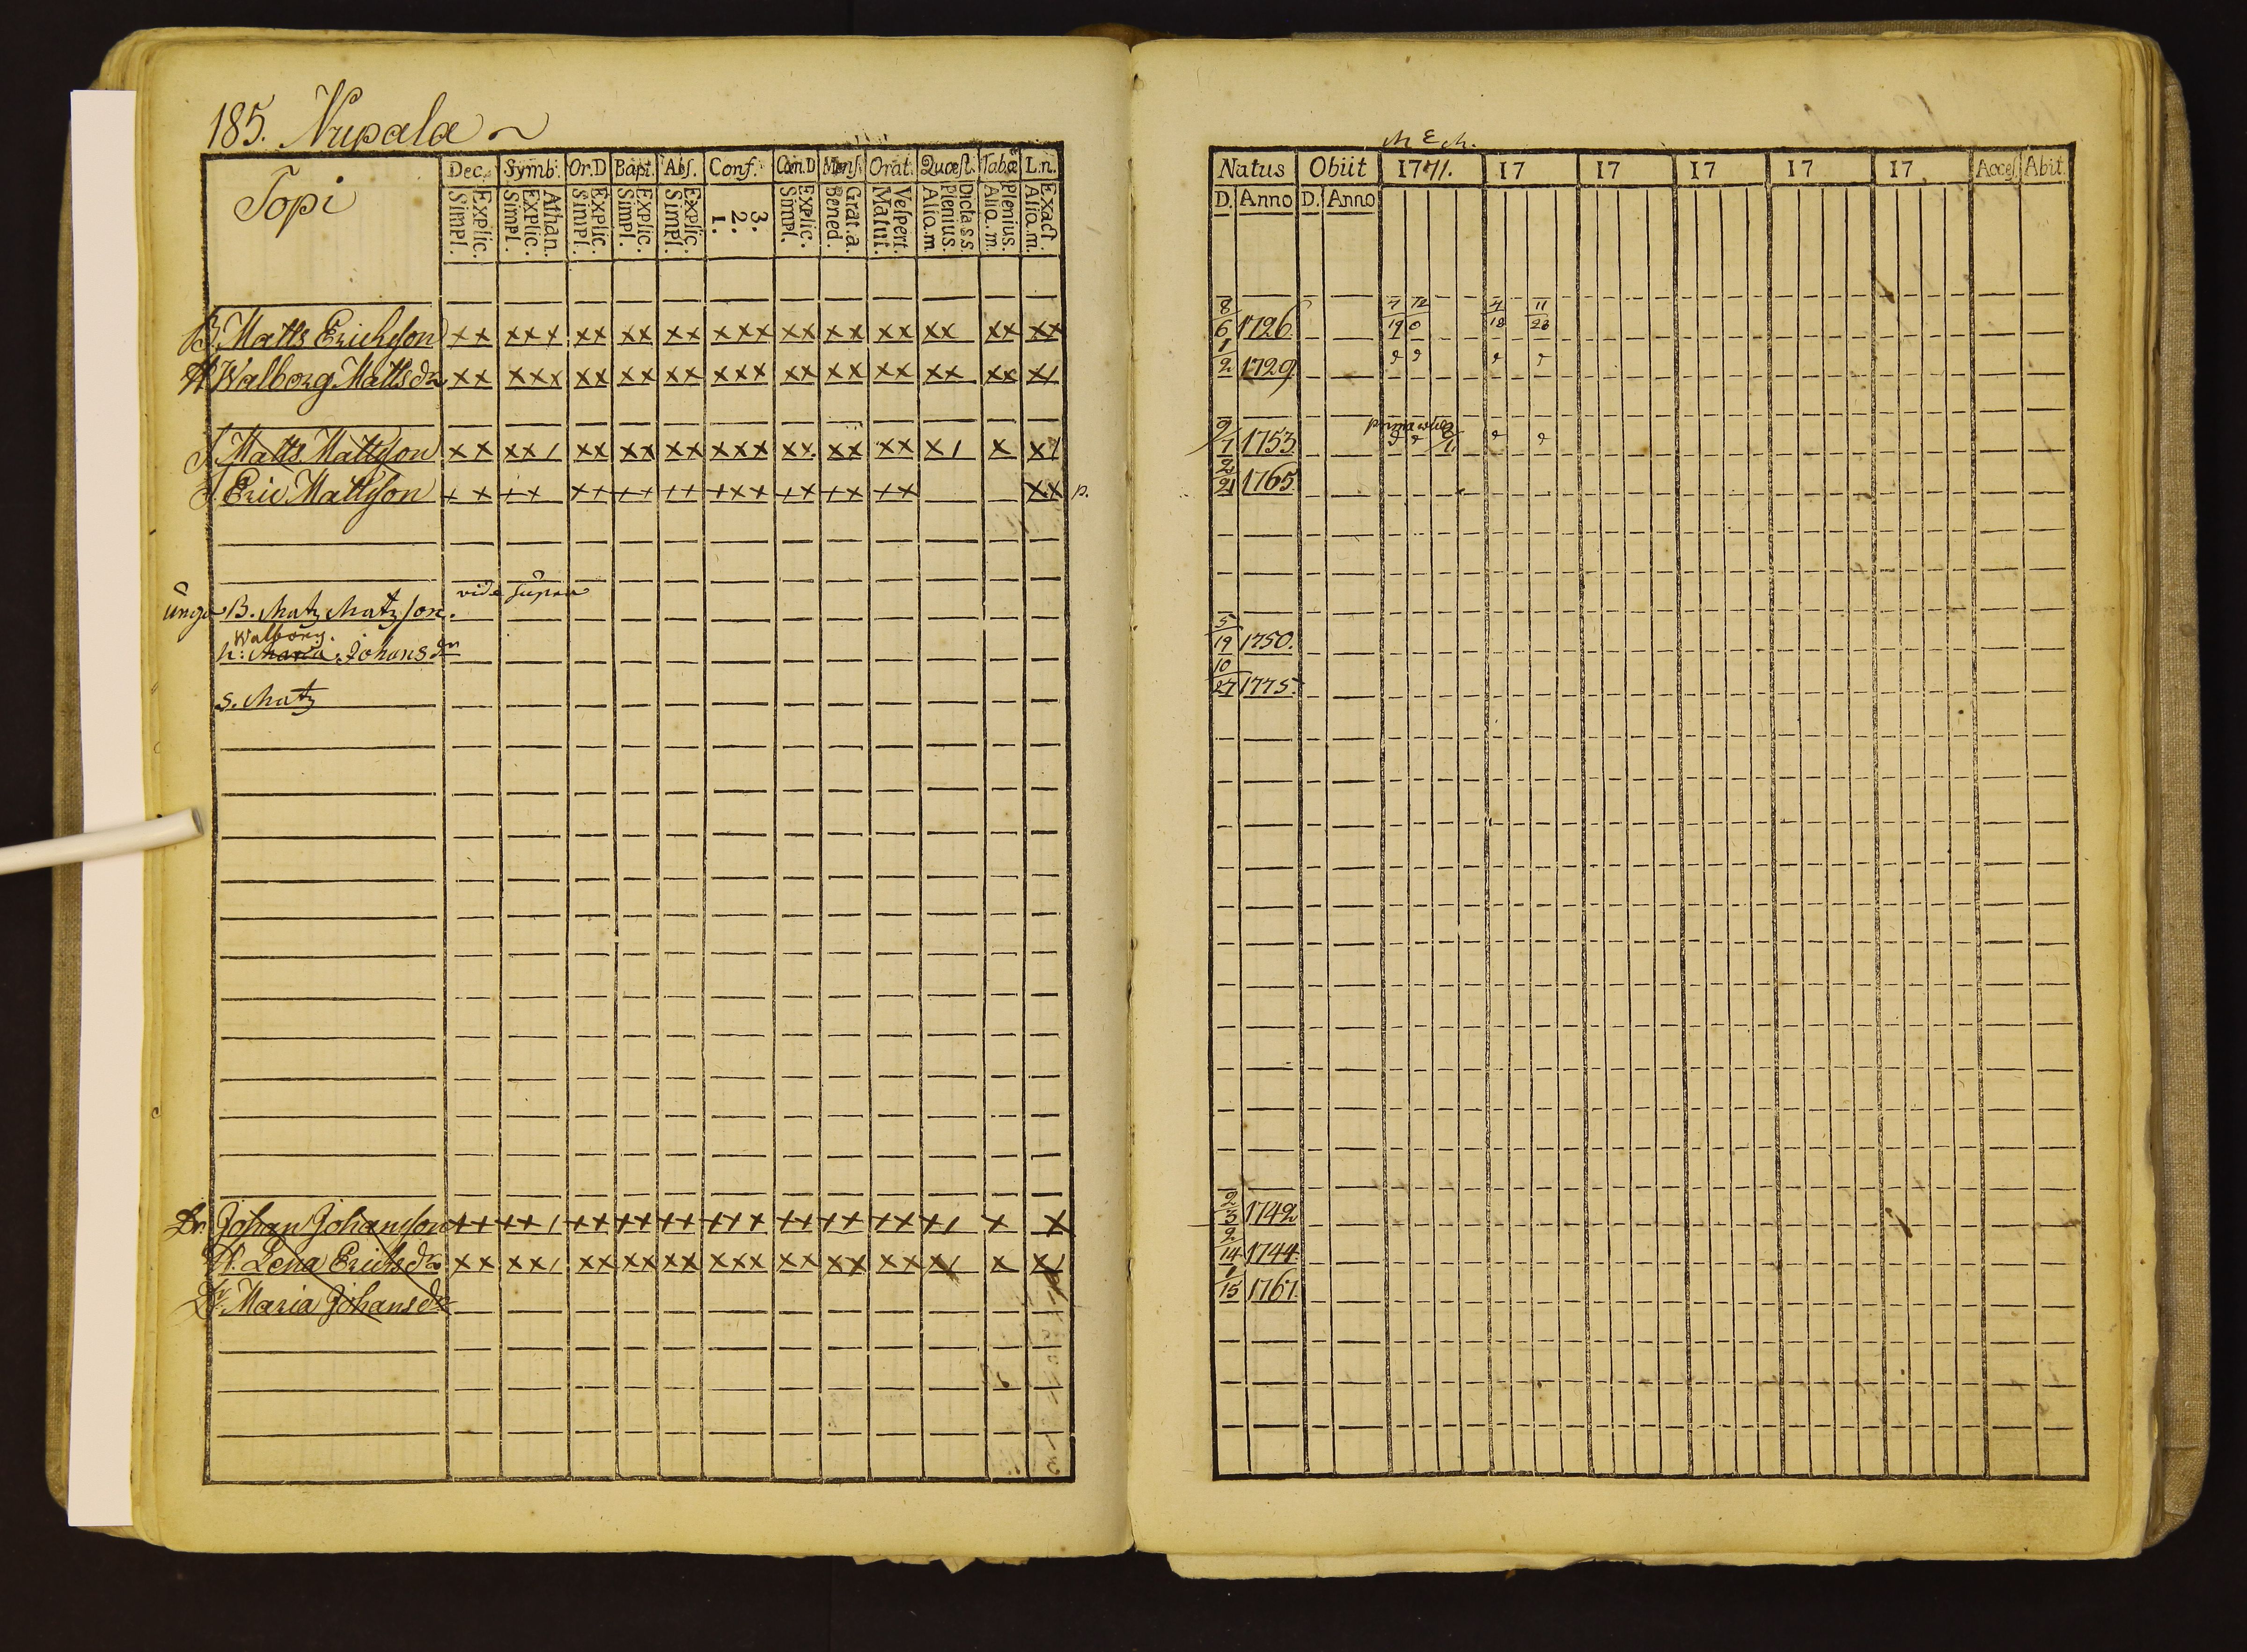 185. Nupala
Topi
Dec. Symb. Or.D Bapt. Abs. Conf. Cœn.D Mens. Orat. Quæst. Tab.œ L.n.
Simpl. Explic. Simpl. Explic. Athan. Simpl. Explic. Simpl. Explic. Simpl. Explic. 1. 2. 3. Simpl. Explic. Bened. Grat.a. Matut. Vespert. Aliq.m Plenius. Dicta s.s. Aliq.m. Plenius. Aliq.m. Exact.
B. Matts Erichsson xx xxx xx xx xx xxx xx xx xx xx xx xx
H. Walborg Mattsdr xx xxx xx xx xx xxx xx xx xx xx xx x/
S. Matts Mattsson xx xx/ xx xx xx xxx xx xx xx x/ x x/
S. Eric Mattsson xx xx xx xx xx xxx xx xx xx xx p.
vide supra
unge B. Matz Matzson.
Walborg.
h: Maria Johansdr
S. Matz
Dr. Johan Johansson xx xx/ xx xx xx xxx xx xx xx x/ x x
H. Lena Erichsdr xx xx/ xx xx xx xxx xx xx xx x/ x x/
Dr. Maria Johansdr
M E M.
Natus Obiit 1771. 17 17 17 17 17 Acces Abit
D. Anno D. Anno
8/6 1726. 4/19 4/18 11/23
1/2 1729
9/7 1753
2/21 1765
5/19 1750.
10/27 1775.
2/3 1742
2/14 1744.
1/15 1767.